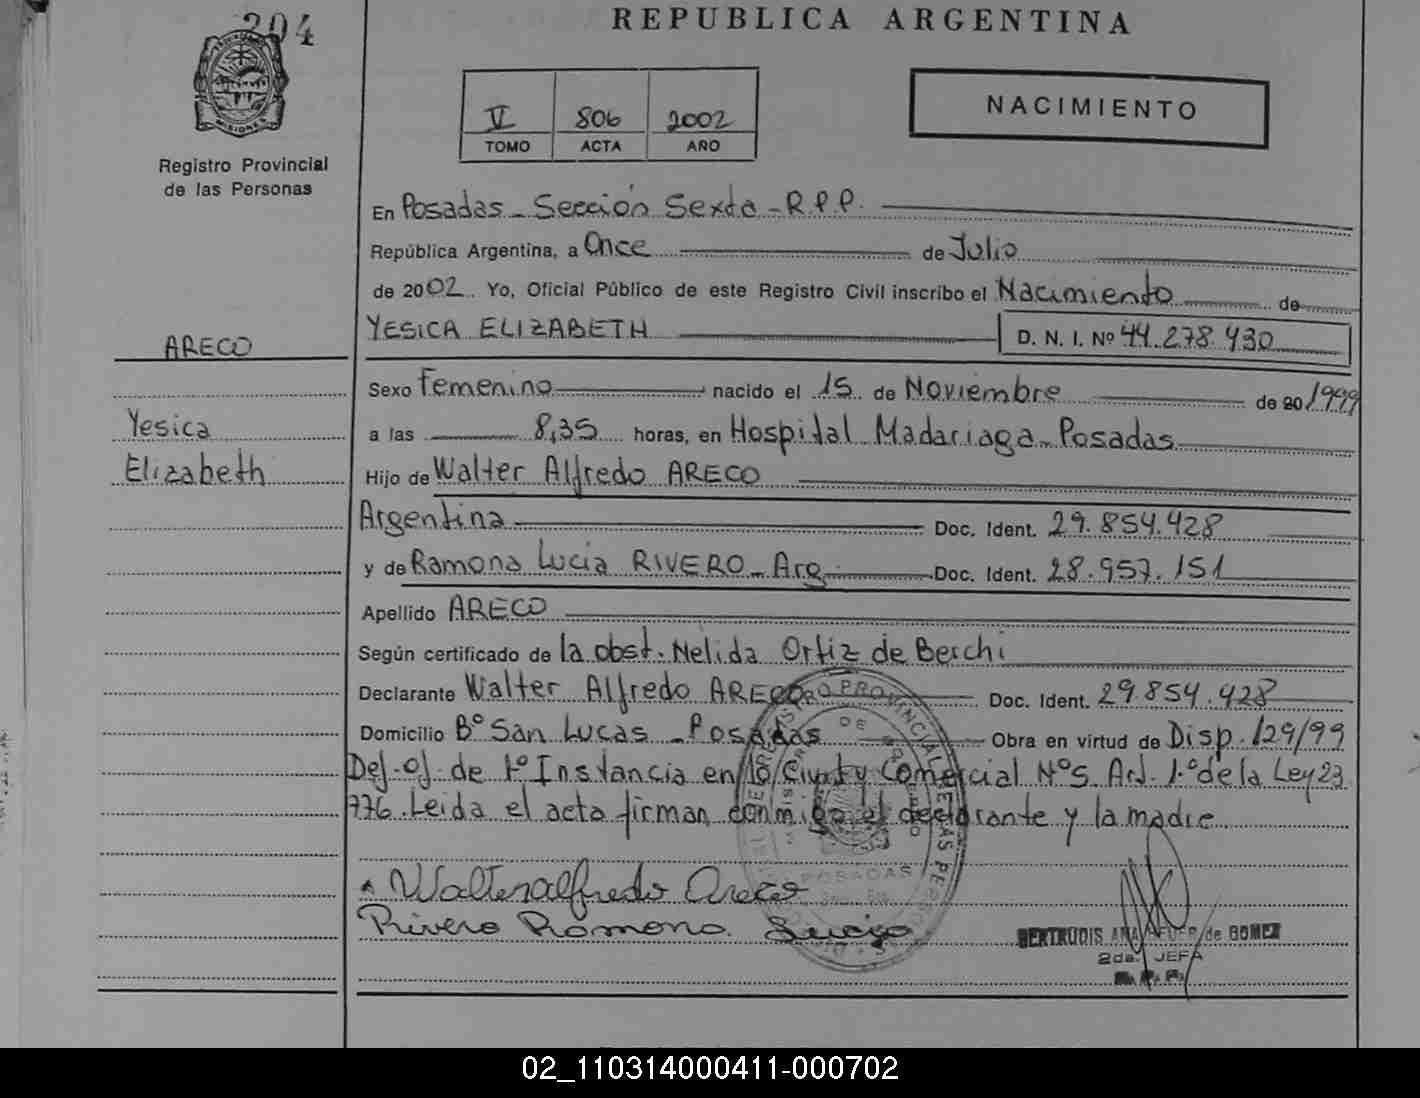 204
REPUBLICA ARGENTINA
MISIONES
Registro Provincial
de las Personas
V 806 2002
TOMO ACTA AÑO
NACIMIENTO
En Posadas - Sección Sexta - R.P.P.
República Argentina, a Once de Julio
de 2002. Yo, Oficial Público de este Registro Civil inscribo el Nacimiento de
YESICA ELIZABETH D. N. I. Nº 44.278.430
ARECO
Yesica
Elizabeth
Sexo Femenino nacido el 15 de Noviembre de 20 1999
a las 8,35 horas, en Hospital Madariaga - Posadas
Hijo de Walter Alfredo ARECO
Argentina Doc. Ident. 29.854.428
y de Ramona Lucia RIVERO - Arg. Doc. Ident. 28.957.151
Apellido ARECO
Según certificado de la obst. Nelida Ortiz de Berchi
Declarante Walter Alfredo ARECO Doc. Ident. 29.854.428
Domicilio Bº San Lucas - Posadas Obra en virtud de Disp. 129/99
Def. of. de 1º Instancia en lo Civil y Comercial Nº5. Art. 1º de la Ley 23
776. Leida el acta firman conmigo el declarante y la madre
Walter alfredo Areco
Rivero Romona Lucia
REGISTRO PROVINCIAL DE LAS PERSONAS
POSADAS
GERTRUDIS ANA de GOMEZ
2da. JEFA
02_110314000411-000702